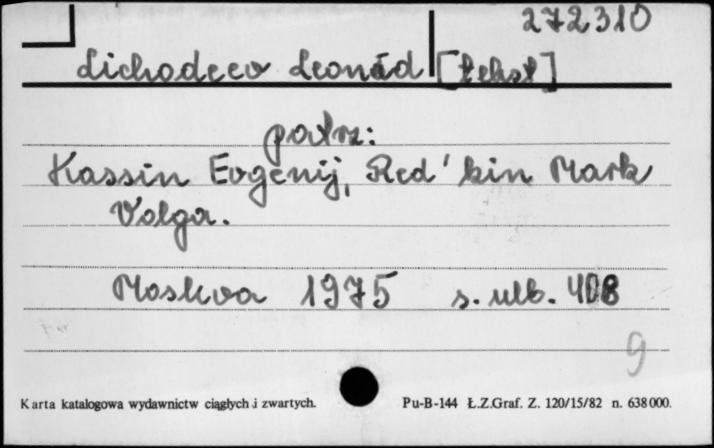 272310
Lichodeev Leonid [tekst]
patrz:
Kassin Evgenij, Red'kin Mark
Volga.
Moskva 1975 s. nlb. 408
9
Karta katalogowa wydawnictw ciągłych i zwartych. Pu-B-144 Ł.Z.Graf. Z. 120/15/82 n. 638000.